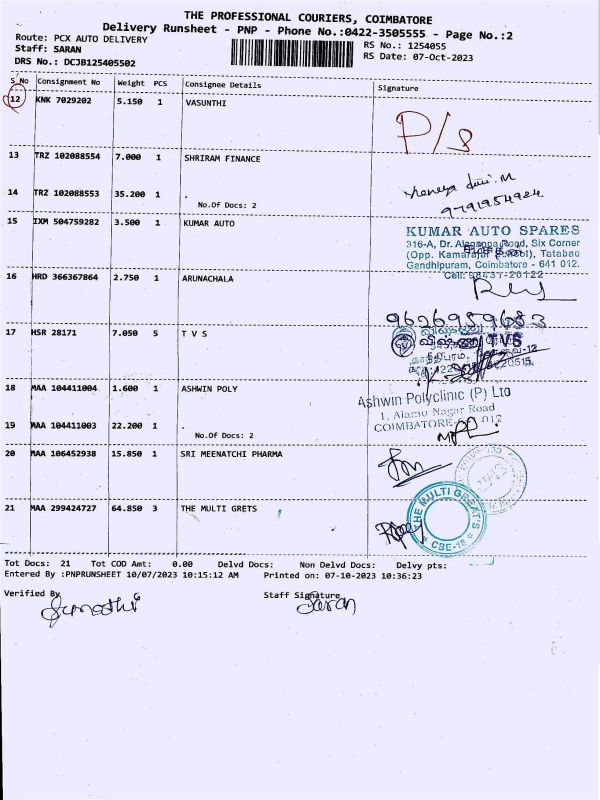 THE PROFESSIONAL COURIERS, COIMBATORE
Delivery Runsheet - PNP - Phone No.:0422-3505555 - Page No.:2
Route: PCX AUTO DELIVERY
RS No.: 1254055
Staff: SARAN
RS Date: 07-Oct-2023
DRS No.: DCJB125405502
S No Consignment No Weight PCS Consignee Details Signature
12 KNK 7029202 5.150 1 VASUNTHI
P/s
13 TRZ 102088554 7.000 1 SHRIRAM FINANCE
14 TRZ 102088553 35.200 1 .
No.Of Docs: 2
9791954924
15 IXM 504759282 3.500 1 KUMAR AUTO
KUMAR AUTO SPARES
316-A, Dr. Alagappa Road, Six Corner
(Opp. Kamarajar School), Tatabad
Gandhipuram, Coimbatore - 641 012.
Cell: 98431-20122
16 HRD 366367864 2.750 1 ARUNACHALA
17 HSR 28171 7.050 5 T V S
TVS
18 MAA 104411004 1.600 1 ASHWIN POLY
Ashwin Polyclinic (P) Ltd
1, Alamu Nagar Road
COIMBATORE- 012
19 MAA 104411003 22.200 1 .
No.Of Docs: 2
20 MAA 106452938 15.850 1 SRI MEENATCHI PHARMA
21 MAA 299424727 64.850 3 THE MULTI GRETS
THE MULTI GREATS
CBE-18
Tot Docs: 21 Tot COD Amt: 0.00 Delvd Docs: Non Delvd Docs: Delvy pts:
Entered By :PNPRUNSHEET 10/07/2023 10:15:12 AM Printed on: 07-10-2023 10:36:23
Verified By Staff Signature
Saran